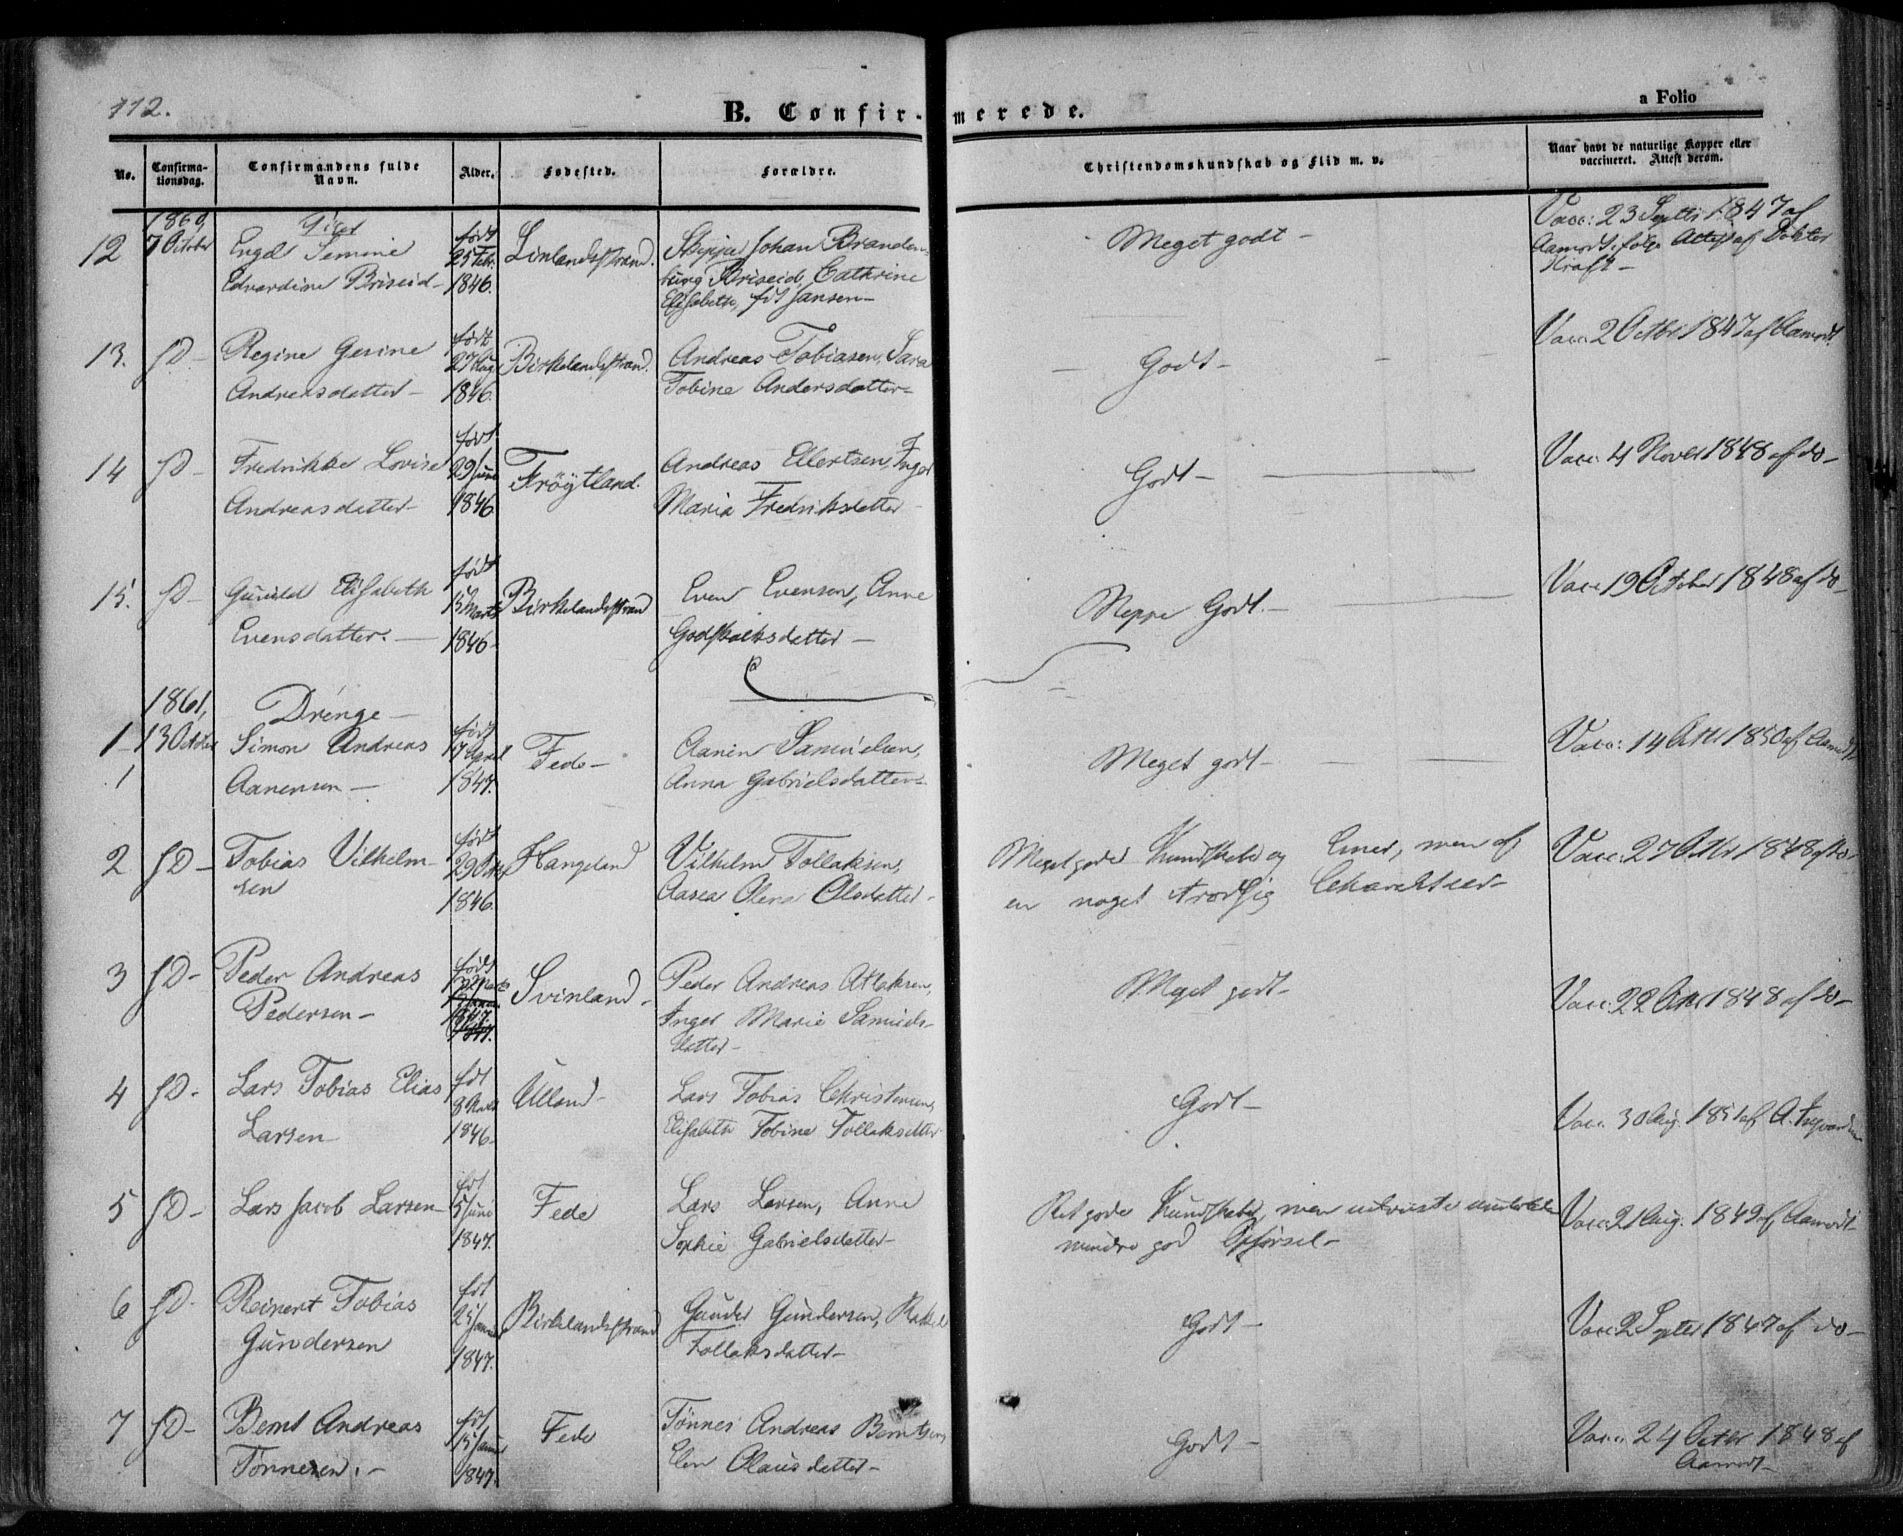 112.
B. Confirmerede.
a Folio
No. Confirmationsdag. Confirmandens fulde Navn. Alder. Fødested. Forældre. Christendomskundskab og Flid m. v. Naar havt de naturlige Kopper eller vaccineret. Attest derom.
1860, Piger
12 7 October Engel Semine født Linlandsstrand. Skipper Johan Branden- Meget godt - Vacc: 23 Septbr 1847 af
Edvardine Briseid - 25 Febr. burg Briseid, Cathrine Aamodt ifølge Attest af Doktor
1846. Elisabeth, fdt Jansen - Kraft -
13. fD - Regine Gesine født Birkelandsstrand. Andreas Tobiasen, Sara Godt - Vacc. 2 Octbr 1847 af Aamodt.
Andreasdatter - 27 Aug Tobine Andersdatter -
1846.
14 fD - Fredrikke Lovise født Frøytland. Andreas Ellertsen, Inger Godt - Vacc. 4 Novbr 1848 af do -
Andreasdatter - 29 Juni Maria Fredriksdatter -
1846
15. fD - Gunild Elisabeth født Birkelandsstrand Even Evensen, Anne Neppe Godt. - Vacc 19 October 1848 af do -
Evensdatter. - 15 Marts Godskalksdatter -
1846 -
1861, Drenge -
1 - 13 October Simon Andreas født Fede - Aanen Samuelsen, Meget godt - Vacc: 14 1850 af Aamodt
1 Aanensen - 17 April Anna Gabrielsdatter -
1847.
2 fD - Tobias Vilhelm- født Hangeland Vilhelm Tollaksen, Meget gode Kundskaber og Evner, men af Vacc. 27 Octbr 1848 af do -
sen 29 Aasea Olene Olsdatter - en noget trodsig Charakteer -
1846.
3 fD - Peder Andreas født Svinland - Peder Andreas Atlaksen, Meget godt - Vacc. 22 1848 af do -
Pedersen - 1847. Inger Marie Samuels-
datter -
4 fD - Lars Tobias Elias fdt Ulland - Lars Tobias Christensen, Godt - Vacc. 30 Aug. 1851 af A.
Larsen - 8 Elisabeth Tobine Tollaksdatter
1846 -
5 fD - Lars Jacob Larsen - fdt Fede Lars Larsen, Anne Ret gode Kundskaber, men udviste undertiden Vacc. 21 Aug. 1849 af Aamodt
5 Juni Sophie Gabrielsdatter - mindre god Opførsel -
1847.
6 fD - Reinert Tobias fdt Birkelandsstrand Gunder Gundersen, Rakel Godt - Vacc. 2 Septbr 1847 af do -
Gundersen Januar Tollaksdatter -
1847.
7 fD - Bernt Andreas fdt Fede Tønnes Andreas Berntsen, Godt - Vacc. 24 Octbr 1848 af
Tønnesen. - 15 Januar Elen Olausdatter - Aamodt -
1847.